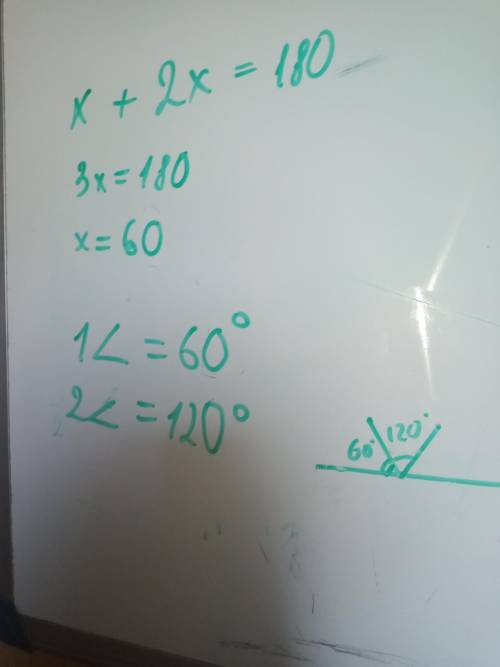 x + 2x = 180
3x = 180
x = 60
1< = 60°
2< = 120°
60° 120°